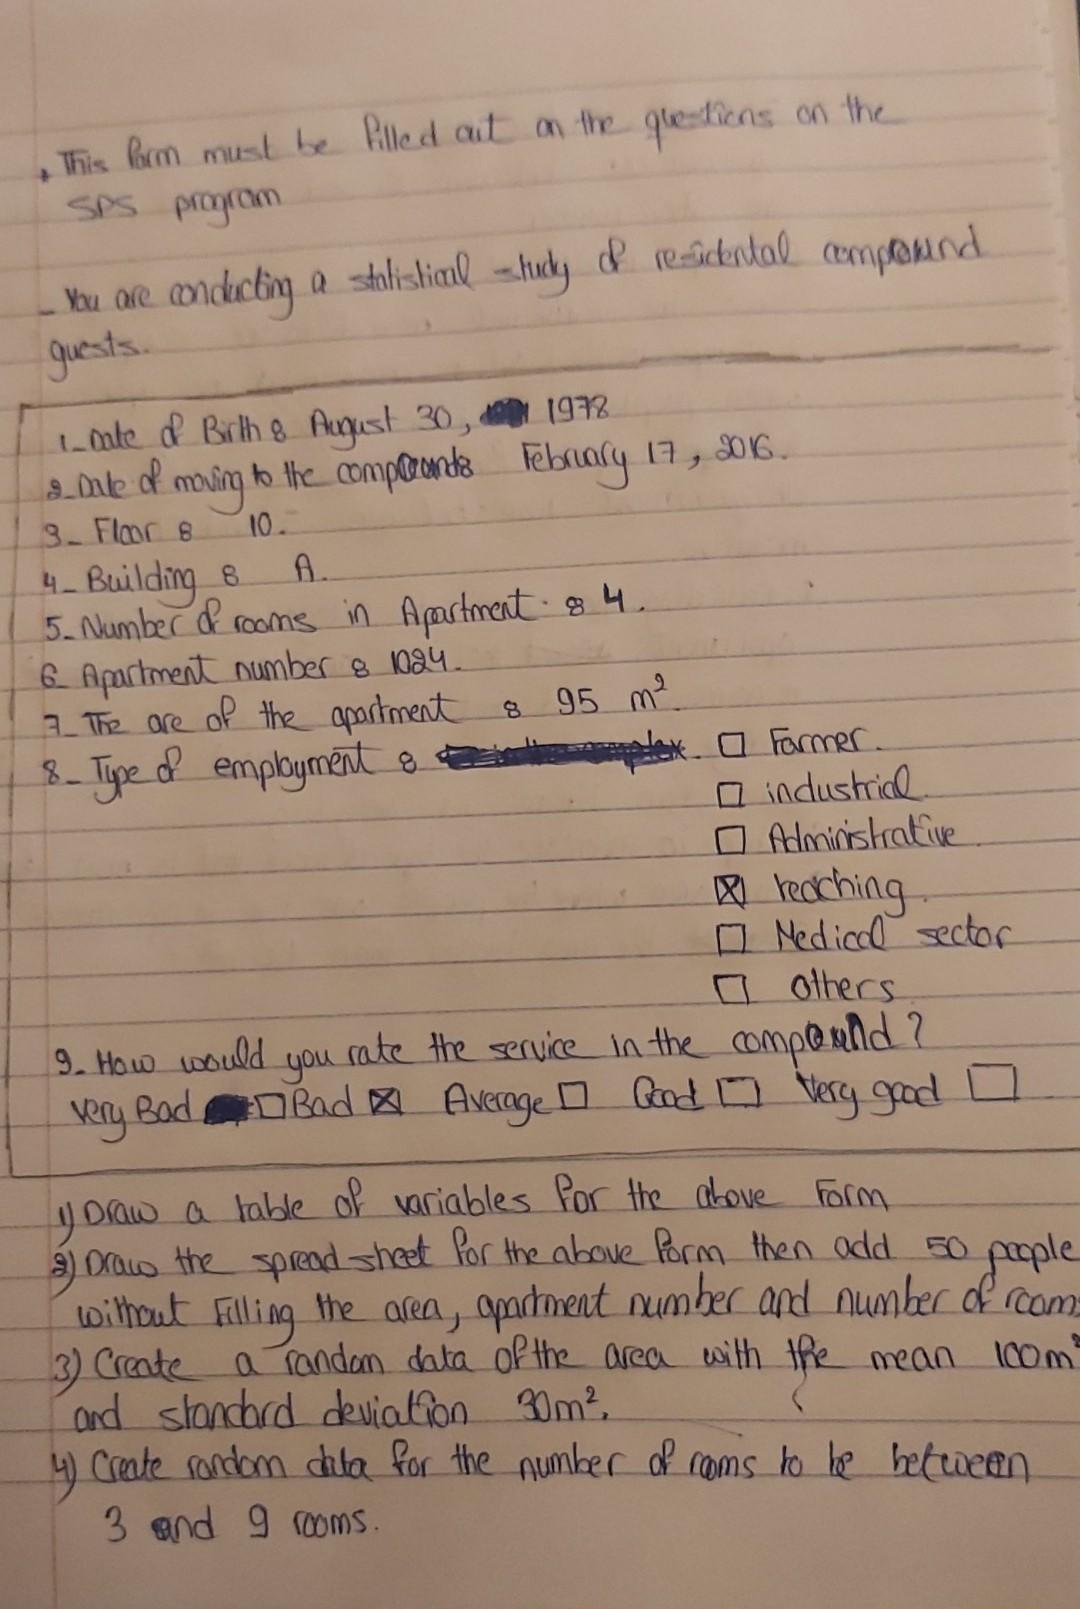 * This form must be filled out on the questions on the
SPS program
- You are conducting a statistical study of residental compound
guests.
1- Date of Birth : August 30, 1978
2- Date of moving to the compound : February 17, 2016.
3- Floor : 10.
4- Building : A.
5- Number of rooms in Apartment : 4.
6- Apartment number : 1024.
7- The are of the apartment : 95 m².
8- Type of employment : □ Farmer.
□ industrial.
□ Administrative.
☒ teaching.
□ Medical sector
□ others
9- How would you rate the service in the compound ?
very Bad □ Bad ☒ Average □ Good □ Very good □
1) Draw a table of variables for the above Form
2) Draw the spread sheet for the above form then add 50 people
without Filling the area, apartment number and number of rooms
3) Create a random data of the area with the mean 100m²
and standard deviation 30m².
4) Create random data for the number of rooms to be between
3 and 9 rooms.